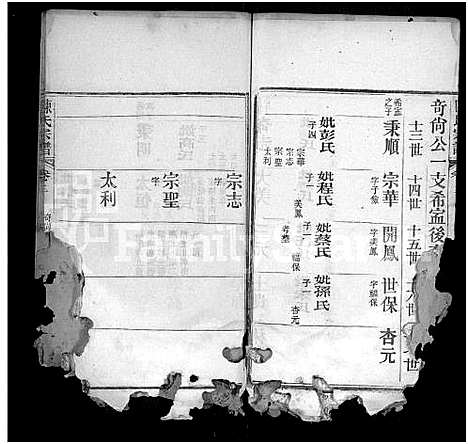 奇尚公一支希寍後
十三世 十四世 十五世 十六世
希寍之子 秉順 宗華 字子儉 開鳳 字美鳳 世保 字福保 杏元
妣彭氏 子四 宗華 宗志 宗聖 太利
妣程氏 子一 美鳳
妣蔡氏 子一 福保
妣孫氏 子一 杏元
宗志 字
宗聖 字
太利
陳氏宗譜 卷
FamilySearch